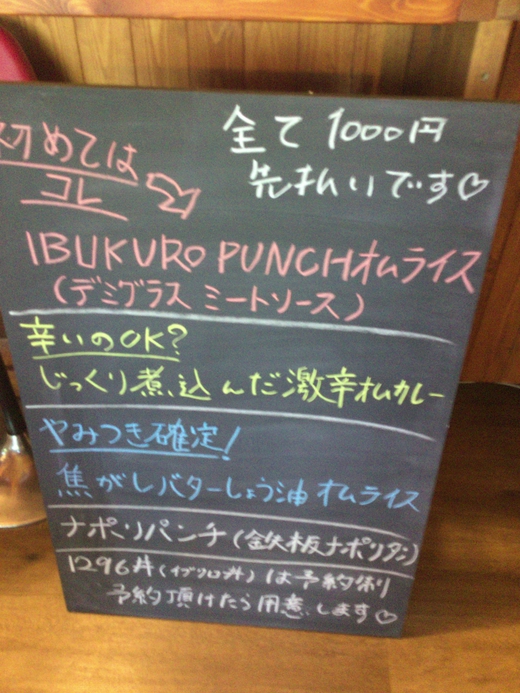 全て 1000円
先払いです♡
初めては
コレ
IBUKURO PUNCHオムライス
(デミグラス ミートソース)
辛いのOK?
じっくり煮込んだ激辛オムカレー
やみつき確定!
焦がしバターしょう油 オムライス
ナポリパンチ(鉄板ナポリタン)
1296丼(イブクロ丼)は予約制
予約頂けたら用意します♡